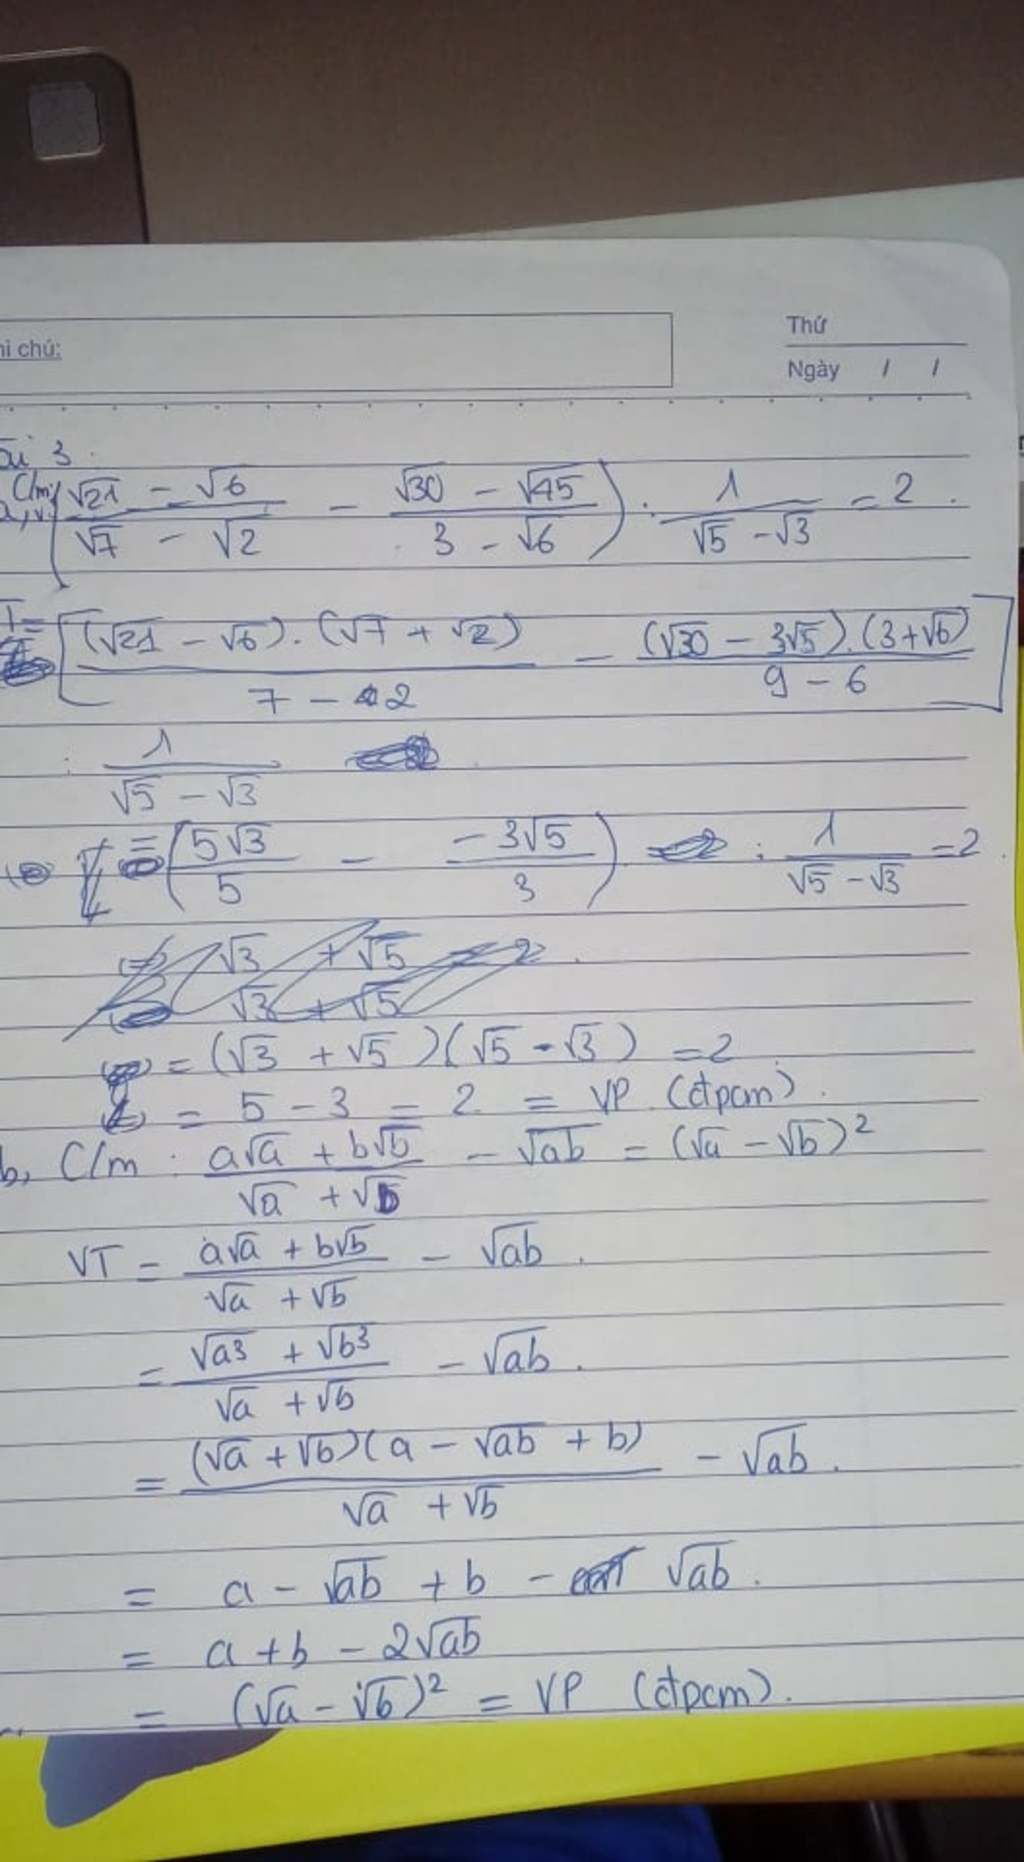 Thứ
Ghi chú:
Ngày / /
Bài 3.
a, C/m: (√21 - √6 / √7 - √2 - √30 - √45 / 3 - √6) : 1 / √5 - √3 = 2.
VT = [(√21 - √6).(√7 + √2) / 7 - 2 - (√30 - 3√5).(3+√6) / 9 - 6]
: 1 / √5 - √3
= (5√3 / 5 - -3√5 / 3) : 1 / √5 - √3 = 2.
√3 + √5 = 2.
√3 + √5
= (√3 + √5)(√5 - √3) = 2
= 5 - 3 = 2 = VP (đpcm).
b, C/m: a√a + b√b / √a + √b - √ab = (√a - √b)²
VT = a√a + b√b / √a + √b - √ab.
= √a³ + √b³ / √a + √b - √ab.
= (√a + √b)(a - √ab + b) / √a + √b - √ab.
= a - √ab + b - √ab.
= a + b - 2√ab
= (√a - √b)² = VP (đpcm).